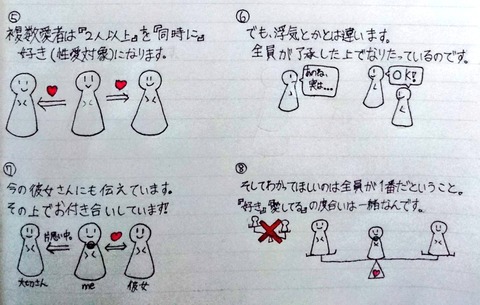 ⑤
複数愛者は『2人以上』を『同時に』
好き(性愛対象)になります。
⑥
でも、浮気とかとは違います。
全員が了承した上でなりたっているのです。
あのね、
実は…
OK!
⑦
今の彼女さんにも伝えています。
その上でお付き合いしています!
片思い中。
大切さん
me
彼女
⑧
そしてわかってほしいのは全員が1番だということ。
『好き』『愛してる』の度合いは一緒なんです。